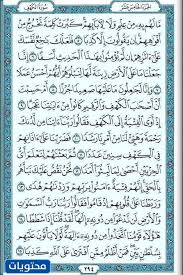 الجزء الخامس عشر سورة الكهف
مَّا لَهُم بِهِۦ مِنْ عِلْمٍ وَلَا لِءَابَآئِهِمْ ۚ كَبُرَتْ كَلِمَةً تَخْرُجُ مِنْ
أَفْوَٰهِهِمْ ۚ إِن يَقُولُونَ إِلَّا كَذِبًا ٥ فَلَعَلَّكَ بَٰخِعٌ نَّفْسَكَ
عَلَىٰٓ ءَاثَٰرِهِمْ إِن لَّمْ يُؤْمِنُوا۟ بِهَٰذَا ٱلْحَدِيثِ أَسَفًا ٦ إِنَّا
جَعَلْنَا مَا عَلَى ٱلْأَرْضِ زِينَةً لَّهَا لِنَبْلُوَهُمْ أَيُّهُمْ أَحْسَنُ عَمَلًا
٧ وَإِنَّا لَجَٰعِلُونَ مَا عَلَيْهَا صَعِيدًا جُرُزًا ٨ أَمْ حَسِبْتَ
أَنَّ أَصْحَٰبَ ٱلْكَهْفِ وَٱلرَّقِيمِ كَانُوا۟ مِنْ ءَايَٰتِنَا عَجَبًا ٩
إِذْ أَوَى ٱلْفِتْيَةُ إِلَى ٱلْكَهْفِ فَقَالُوا۟ رَبَّنَآ ءَاتِنَا مِن لَّدُنكَ رَحْمَةً
وَهَيِّئْ لَنَا مِنْ أَمْرِنَا رَشَدًا ١٠ فَضَرَبْنَا عَلَىٰٓ ءَاذَانِهِمْ
فِى ٱلْكَهْفِ سِنِينَ عَدَدًا ١١ ثُمَّ بَعَثْنَٰهُمْ لِنَعْلَمَ أَىُّ
ٱلْحِزْبَيْنِ أَحْصَىٰ لِمَا لَبِثُوٓا۟ أَمَدًا ١٢ نَّحْنُ نَقُصُّ عَلَيْكَ نَبَأَهُم
بِٱلْحَقِّ ۚ إِنَّهُمْ فِتْيَةٌ ءَامَنُوا۟ بِرَبِّهِمْ وَزِدْنَٰهُمْ هُدًى ١٣
وَرَبَطْنَا عَلَىٰ قُلُوبِهِمْ إِذْ قَامُوا۟ فَقَالُوا۟ رَبُّنَا رَبُّ ٱلسَّمَٰوَٰتِ
وَٱلْأَرْضِ لَن نَّدْعُوَا۟ مِن دُونِهِۦٓ إِلَٰهًا ۖ لَّقَدْ قُلْنَآ إِذًا شَطَطًا ١٤
هَٰٓؤُلَآءِ قَوْمُنَا ٱتَّخَذُوا۟ مِن دُونِهِۦٓ ءَالِهَةً ۖ لَّوْلَا يَأْتُونَ عَلَيْهِم
بِسُلْطَٰنٍۭ بَيِّنٍ ۖ فَمَنْ أَظْلَمُ مِمَّنِ ٱفْتَرَىٰ عَلَى ٱللَّهِ كَذِبًا ١٥
٢٩٤
محتويات